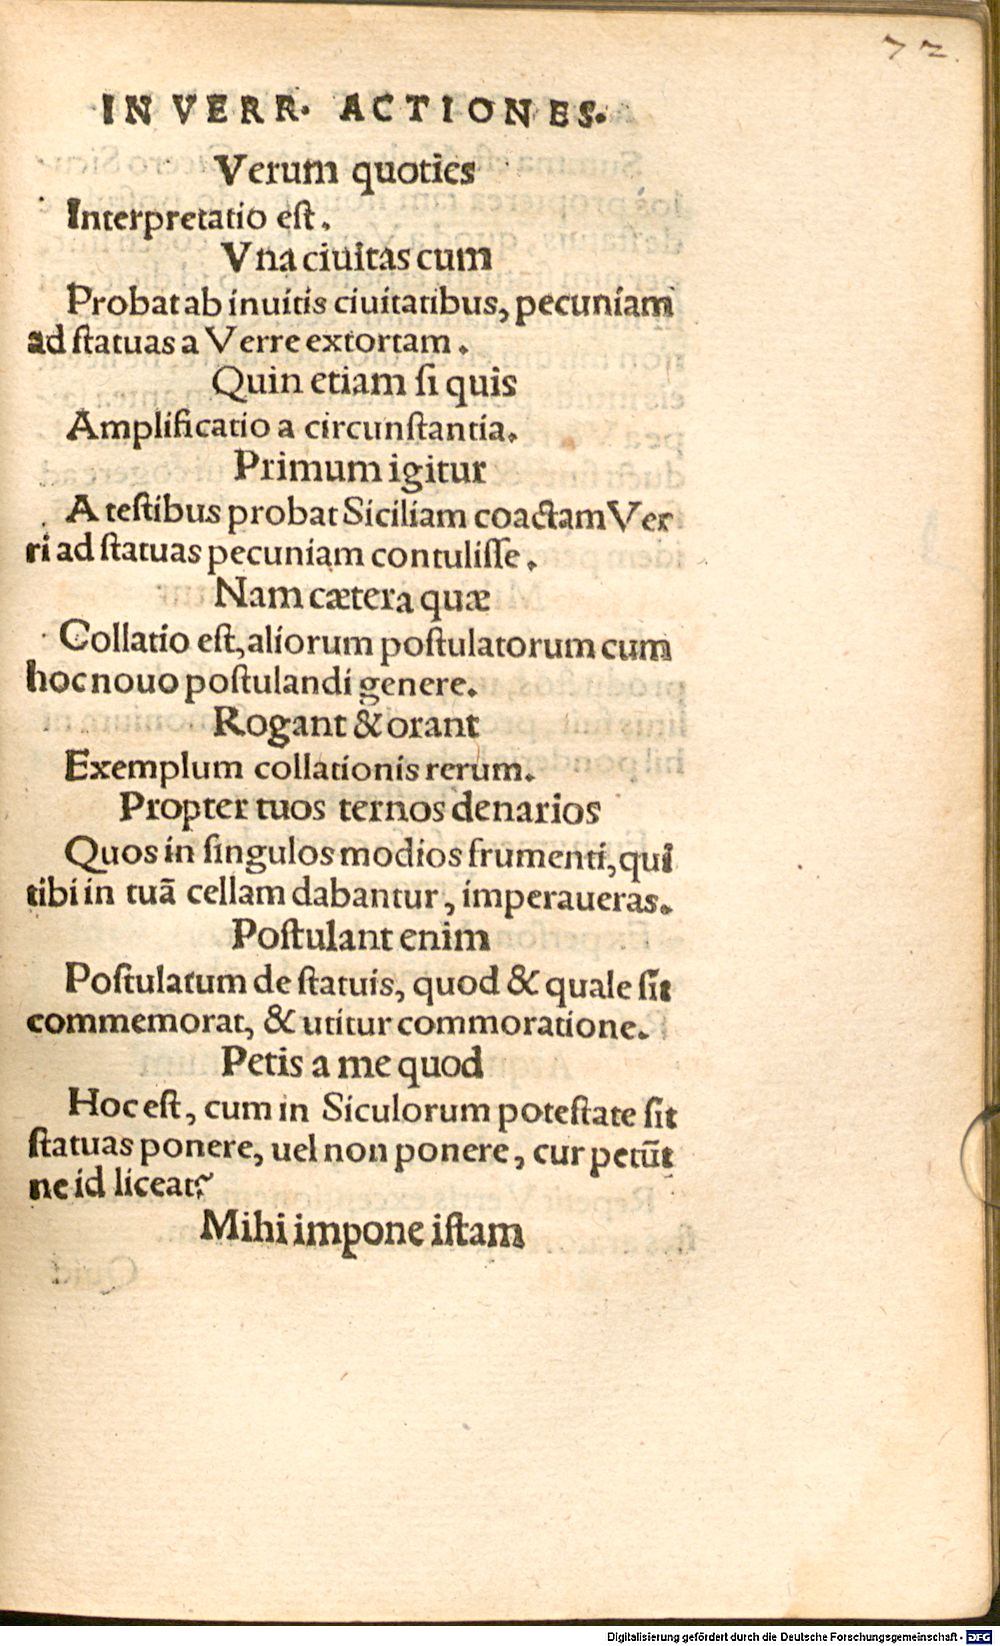 72.
IN VERR. ACTIONES.
Verum quoties
Interpretatio est.
Vna ciuitas cum
Probat ab inuitis ciuitatibus, pecuniam
ad statuas a Verre extortam.
Quin etiam si quis
Amplificatio a circunstantia.
Primum igitur
A testibus probat Siciliam coactam Ver
ri ad statuas pecuniam contulisse.
Nam cætera quæ
Collatio est, aliorum postulatorum cum
hoc nouo postulandi genere.
Rogant & orant
Exemplum collationis rerum.
Propter tuos ternos denarios
Quos in singulos modios frumenti, qui
tibi in tuã cellam dabantur, imperaueras.
Postulant enim
Postulatum de statuis, quod & quale sit
commemorat, & utitur commoratione.
Petis a me quod
Hoc est, cum in Siculorum potestate sit
statuas ponere, uel non ponere, cur petũt
ne id liceat?
Mihi impone istam
Digitalisierung gefördert durch die Deutsche Forschungsgemeinschaft - DFG